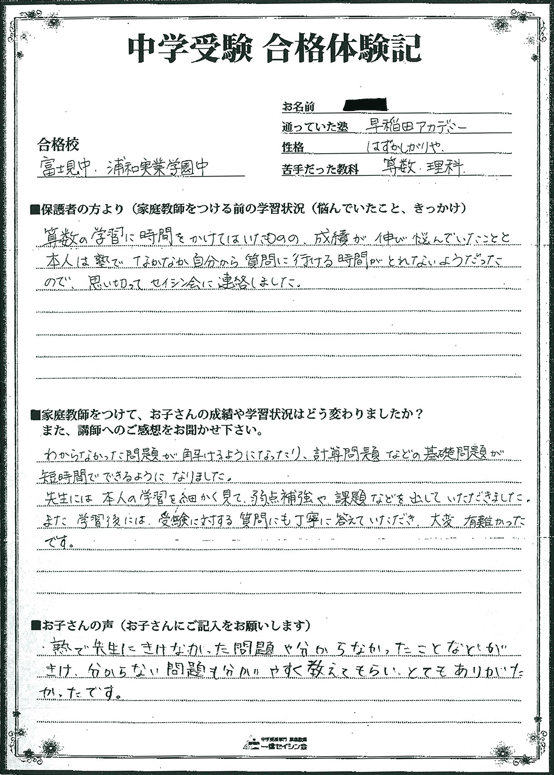 中学受験 合格体験記
お名前
通っていた塾 早稲田アカデミー
性格 はずかしがりや
苦手だった教科 算数、理科
合格校
富士見中、浦和実業学園中
■保護者の方より（家庭教師をつける前の学習状況（悩んでいたこと、きっかけ）
算数の学習に時間をかけてはいたものの、成績が伸び悩んでいたことと
本人は塾でなかなか自分から質問に行ける時間がとれないようだった
ので、思い切ってセイシン会に連絡しました。
■家庭教師をつけて、お子さんの成績や学習状況はどう変わりましたか？
また、講師へのご感想をお聞かせ下さい。
わからなかった問題が解けるようになったり、計算問題などの基礎問題が
短時間でできるようになりました。
先生には本人の学習を細かく見て、弱点補強や課題などを出していただきました。
また学習後には、受験に対する質問にも丁寧に答えていただき、大変有難かった
です。
■お子さんの声（お子さんにご記入をお願いします）
塾で先生にきけなかった問題や分からなかったことなどが
きけ、分からない問題も分かりやすく教えてもらい、とてもありがた
かったです。
中学受験専門 家庭教師
一橋セイシン会